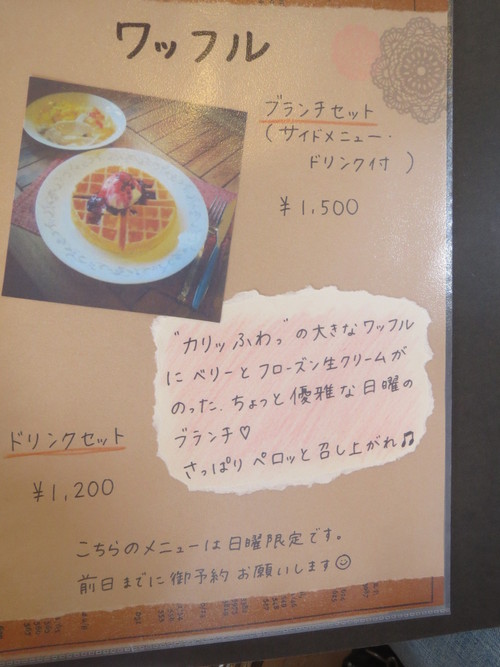 ワッフル
ブランチセット
(サイドメニュー・
ドリンク付)
¥1,500
"カリッふわっ"の大きなワッフル
にベリーとフローズン生クリームが
のった、ちょっと優雅な日曜の
ブランチ♡
さっぱりペロッと召し上がれ♫
ドリンクセット
¥1,200
こちらのメニューは日曜限定です。
前日までに御予約お願いします☺